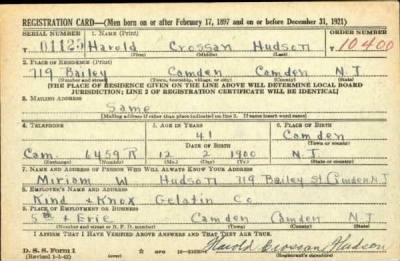 REGISTRATION CARD—(Men born on or after February 17, 1897 and on or before December 31, 1921)
SERIAL NUMBER 1. NAME (Print) ORDER NUMBER
T 01125 Harold Crossan Hudson T 10400
(First) (Middle) (Last)
2. PLACE OF RESIDENCE (Print)
719 Bailey Camden Camden N.J.
(Number and street) (Town, township, village, or city) (County) (State)
[THE PLACE OF RESIDENCE GIVEN ON THE LINE ABOVE WILL DETERMINE LOCAL BOARD
JURISDICTION; LINE 2 OF REGISTRATION CERTIFICATE WILL BE IDENTICAL]
3. MAILING ADDRESS
Same
[Mailing address if other than place indicated on line 2. If same insert word same]
4. TELEPHONE 5. AGE IN YEARS 6. PLACE OF BIRTH
41 Camden
DATE OF BIRTH (Town or county)
Cam. 6459 R 12 2 1900 N.J.
(Exchange) (Number) (Mo.) (Day) (Yr.) (State or country)
7. NAME AND ADDRESS OF PERSON WHO WILL ALWAYS KNOW YOUR ADDRESS
Miriam W Hudson 719 Bailey St. Camden N.J.
8. EMPLOYER'S NAME AND ADDRESS
Kind & Knox Gelatin Co
9. PLACE OF EMPLOYMENT OR BUSINESS
5th & Erie Camden Camden N.J.
(Number and street or R. F. D. number) (Town) (County) (State)
I AFFIRM THAT I HAVE VERIFIED ABOVE ANSWERS AND THAT THEY ARE TRUE.
D. S. S. Form 1
(Revised 1-1-42) Harold Crossan Hudson
(Registrant's signature)